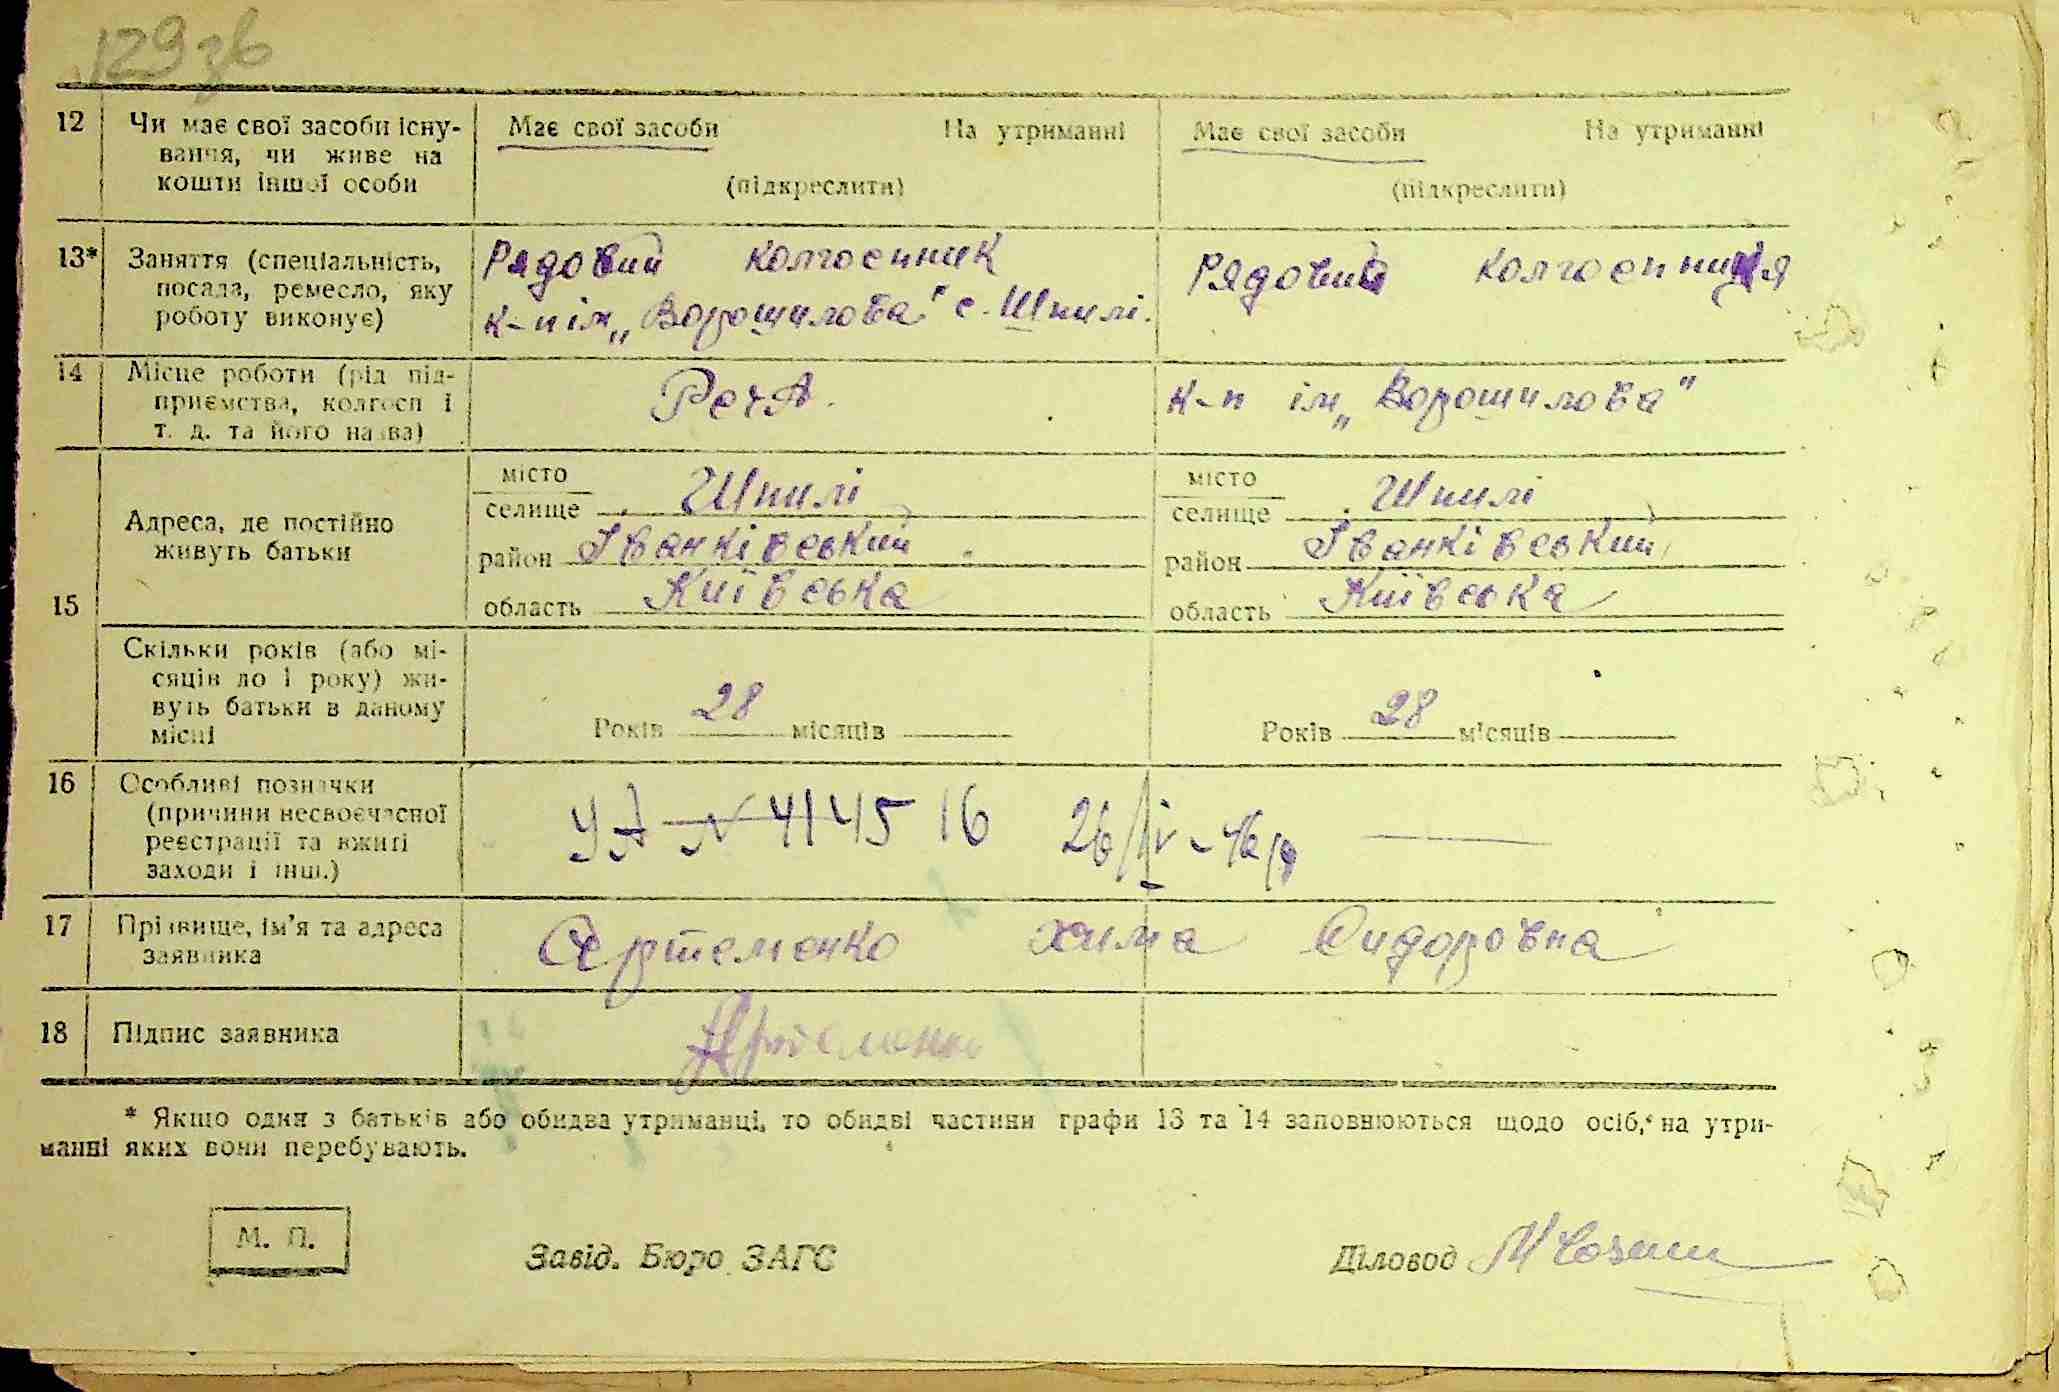 129 зв
12 Чи має свої засоби існу- Має свої засоби На утриманні Має свої засоби На утриманні
вання, чи живе на
кошти іншої особи (підкреслити) (підкреслити)
13* Заняття (спеціальність, Рядовий колгоспник Рядовий колгоспниця
посада, ремесло, яку
роботу виконує) к-п ім „Ворошилова" с. Шпилі.
14 Місце роботи (рід під-
приємства, колгосп і РСЧА. к-п ім „Ворошилова"
т. д. та його назва)
місто місто
селище Шпилі селище Шпилі
Адреса, де постійно
живуть батьки район Іванківський район Іванківський
15 область Київська область Київська
Скільки років (або мі-
сяців до 1 року) жи-
вуть батьки в даному
місці Років 28 місяців Років 28 місяців
16 Особливі позначки
(причини несвоєчасної
реєстрації та вжиті УА № 414516 26/IV-46р
заходи і інш.)
17 Прізвище, ім'я та адреса Артеменко Хима Сидоровна
заявника
18 Підпис заявника Артеменко
* Якщо один з батьків або обидва утриманці, то обидві частини графи 13 та 14 заповнюються щодо осіб, на утри-
манні яких вони перебувають.
М. П.
Завід. Бюро ЗАГС Діловод